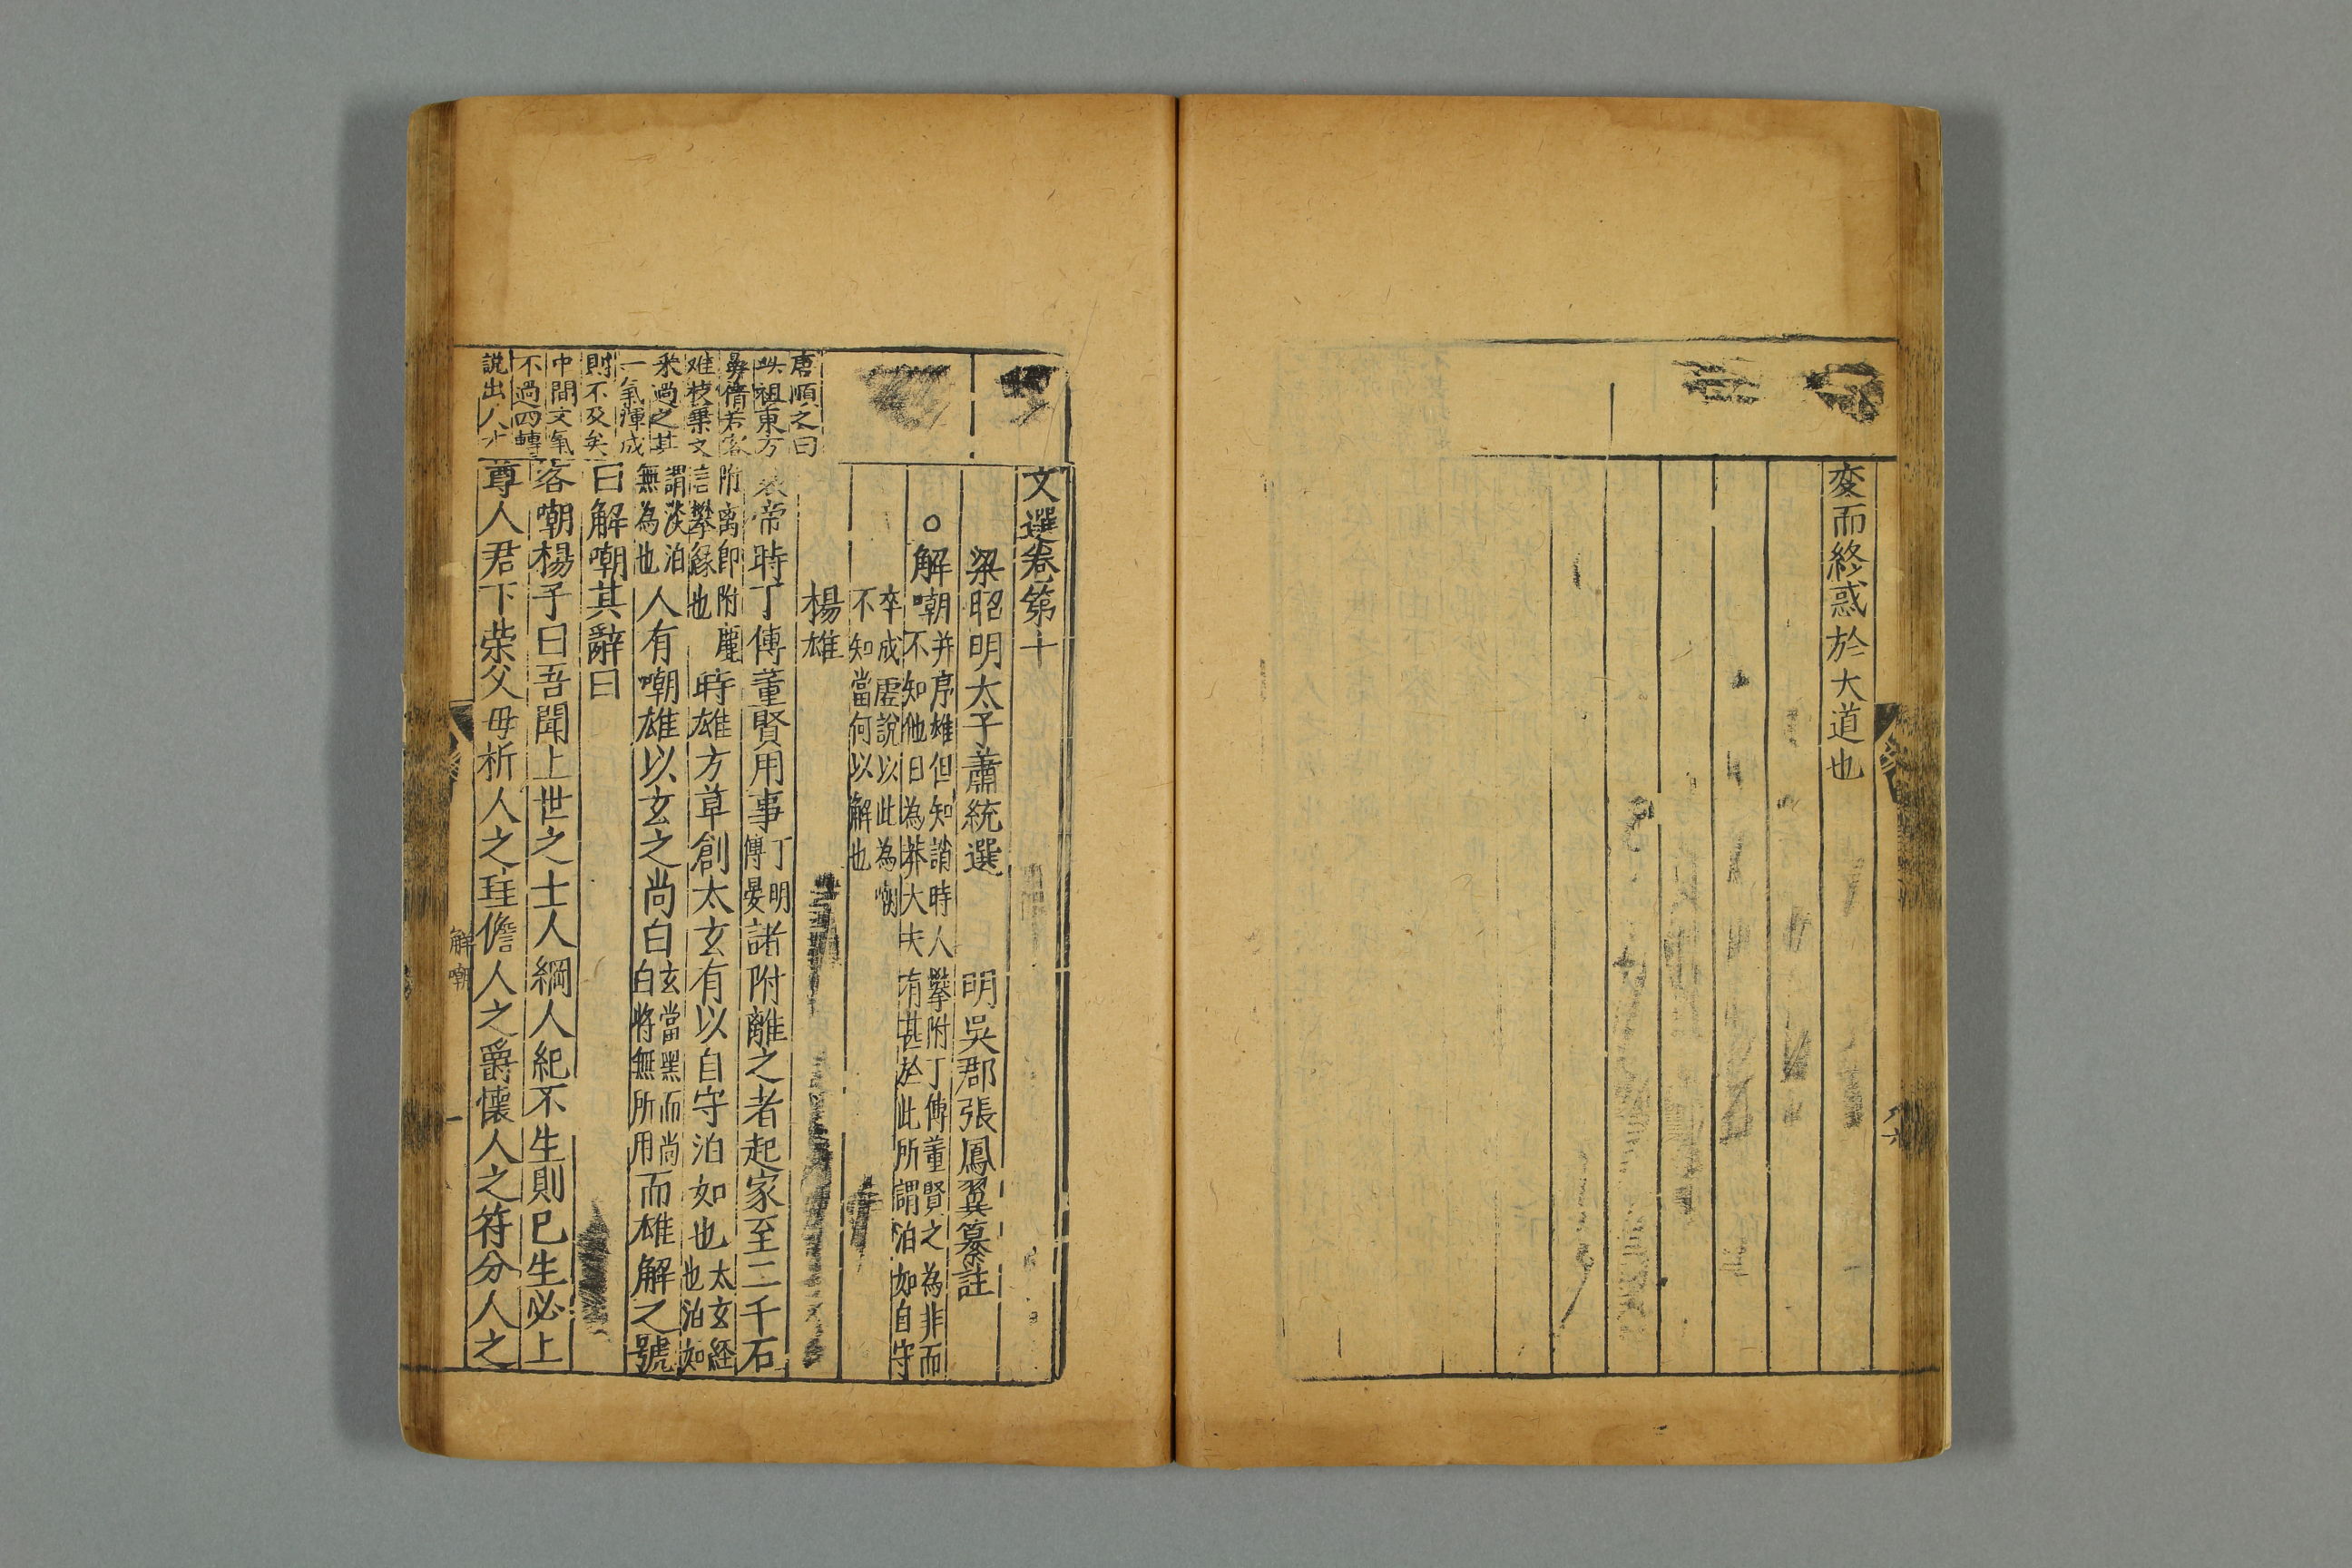 変而終惑於大道也
文選卷第十
梁昭明太子蕭統選　明吳郡張鳳翼纂註
○解嘲并序雄但知誚時人攀附丁傅董賢之為非而
不知他日為莽大夫有甚於此所謂泊如自守
卒成虛說以此為嘲
不知當何以解也
楊雄
哀帝時丁傅董賢用事丁明傅晏諸附離之者起家至二千石
附离即附麗言攀緣也時雄方草創太玄有以自守泊如也太玄経也泊如
謂淡泊無為也人有嘲雄以玄之尚白玄當黑而尚白將無所用而雄解之號
曰解嘲其辭曰
客嘲楊子曰吾聞上世之士人綱人紀不生則已生必上
尊人君下荣父母析人之珪儋人之爵懷人之符分人之
唐順之曰
此祖東方
曼倩答客
难枚乗文
采過之其
一氣渾成
則不及矣
中間文氣
不過四轉
説出人才
解嘲
一